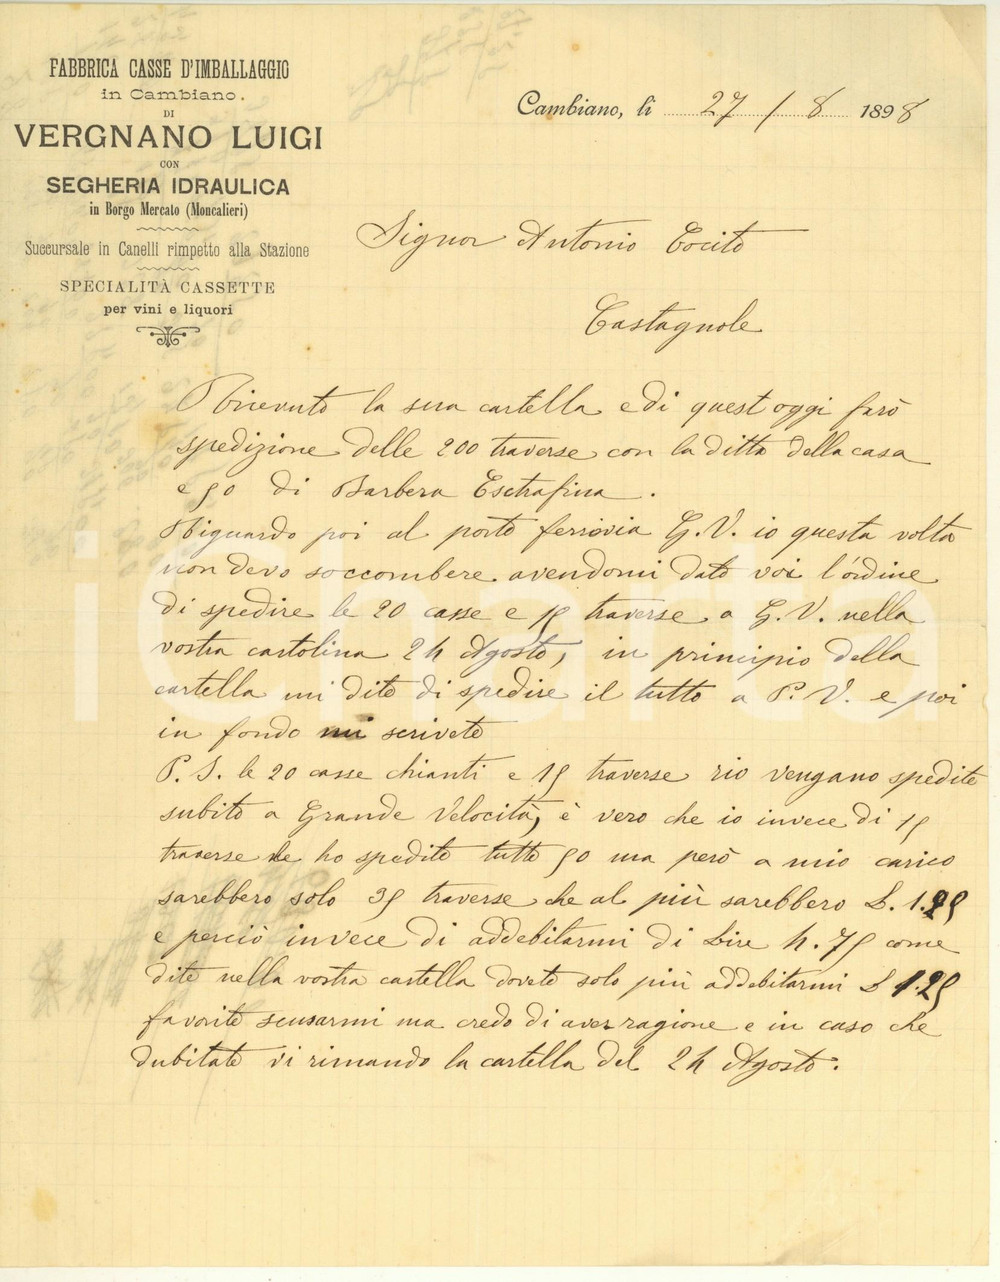 FABBRICA CASSE D'IMBALLAGGIO
in Cambiano.
DI
VERGNANO LUIGI
CON
SEGHERIA IDRAULICA
in Borgo Mercato (Moncalieri)
Succursale in Canelli rimpetto alla Stazione
SPECIALITÀ CASSETTE
per vini e liquori
Cambiano, li 27 / 8 1898
Signor Antonio Cocito
Castagnole
Ricevuto la sua cartella e di quest oggi farò
spedizione delle 200 traverse con la ditta della casa
e 50 di Barbera Esctrafina.
Riguardo poi al porto ferrovia G.V. io questa volta
non devo soccombere avendomi dato voi l'ordine
di spedire le 20 casse e 15 traverse a G.V. nella
vostra cartolina 24 Agosto, in principio della
cartella mi dite di spedire il tutto a P.V. e poi
in fondo mi scrivete
P.S. le 20 casse chianti e 15 traverse vengano spedite
subito a Grande Velocità, è vero che io invece di 15
traverse le ho spedito tutto 50 ma però a mio carico
sarebbero solo 35 traverse che al più sarebbero L. 1.25
e perciò invece di addebitarmi di Lire 4.75 come
dite nella vostra cartella dovete solo più addebitarmi L 1.25
favorite scusarmi ma credo di aver ragione e in caso che
dubitate vi rimando la cartella del 24 Agosto.
iCharta